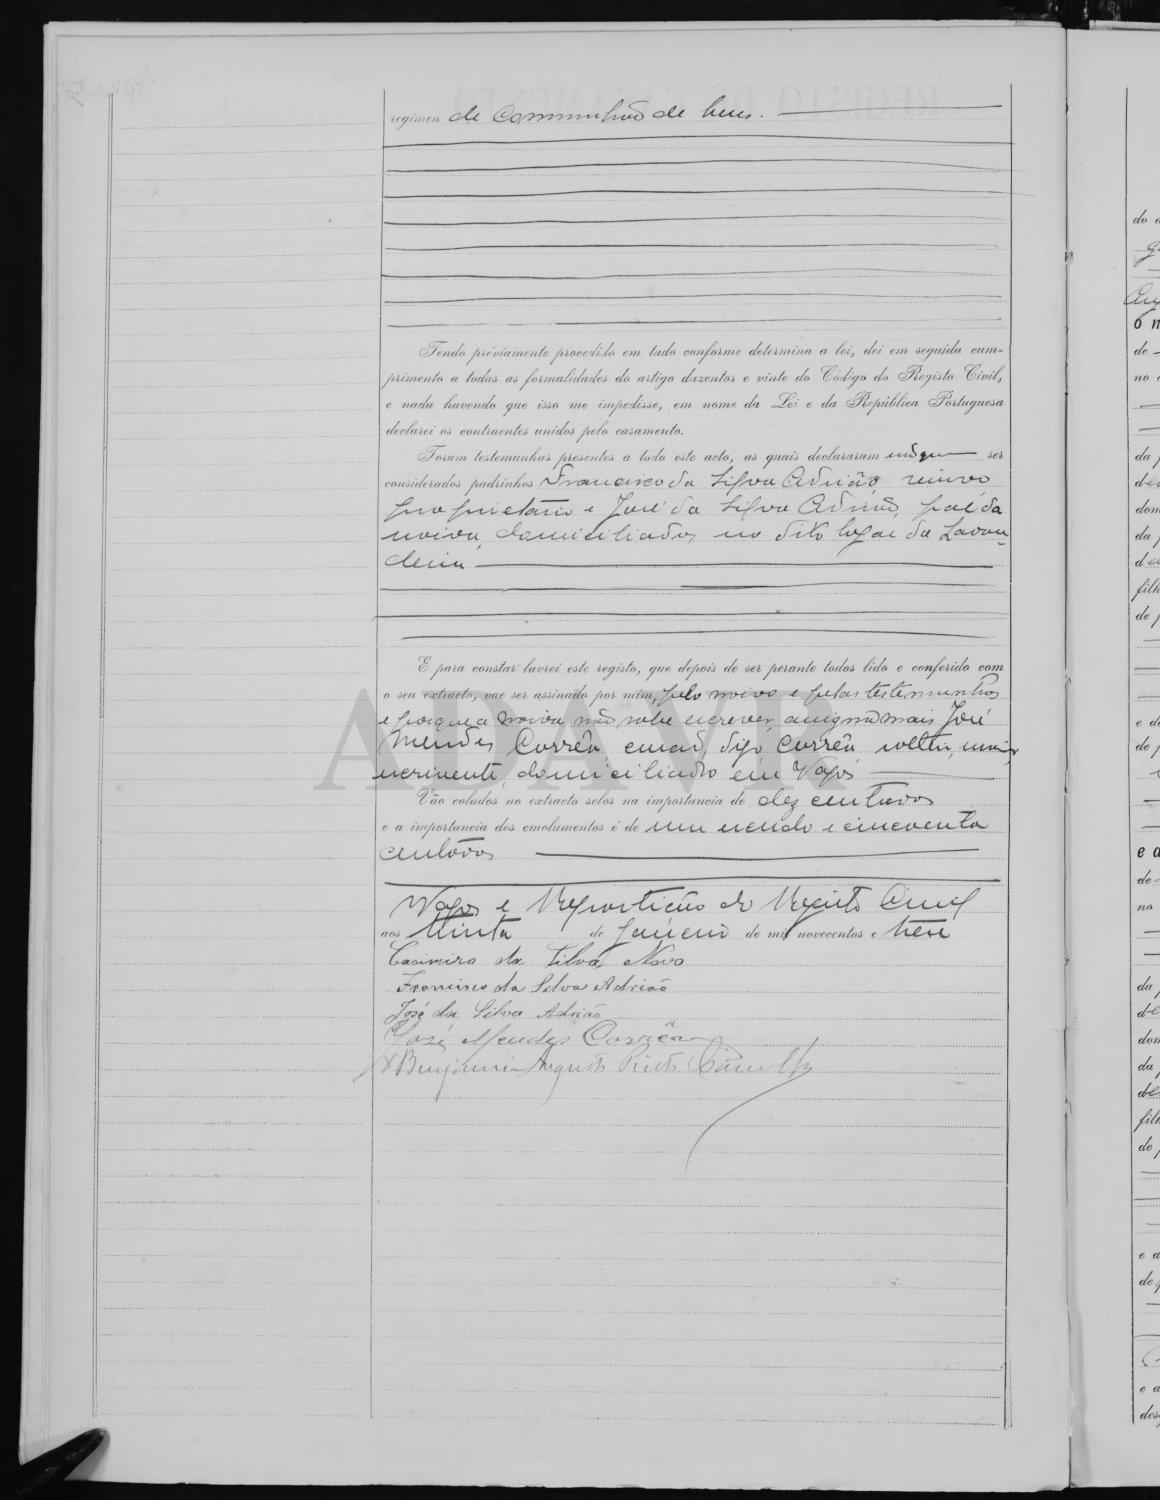 regimen de Communhão de bens.
Tendo préviamente procedido em tudo conforme determina a lei, dei em seguida cum-
primento a todas as formalidades do artigo duzentos e vinte do Código do Registo Civil,
e nada havendo que isso me impedisse, em nome da Lei e da República Portuguesa
declarei os contraentes unidos pelo casamento.
Foram testemunhas presentes a todo este acto, as quais declararam não ser
considerados padrinhos Francisco da Silva Adrião, viuvo
proprietario e José da Silva Adrião, pae da
noiva, domiciliados no dito logar da Lavan-
deira
E para constar lavrei este registo, que depois de ser perante todos lido e conferido com
o seu extracto, vae ser assinado por mim, pelo noivo e pelas testemunhas
e porque a noiva não sabe escrever, assigna mais José
Mendes Corrêa, digo Corrêa, solteiro, maior,
escrivente, domiciliado em Vagos
Vão colados no extracto selos na importancia de dez centavos
e a importancia dos emolumentos é de um escudo e cincoenta
centavos
Vagos e Repartição do Registo Civil
aos trinta de Janeiro de mil novecentos e treze
Casimiro da Silva Novo
Francisco da Silva Adrião
José da Silva Adrião
José Mendes Corrêa
Benjamim Augusto Pinto
ADAVR
do
de
no
da
dom
da
filh
de
e d
de
e a
de
no
da
de
dom
da
de
filh
de
e a
de
e a